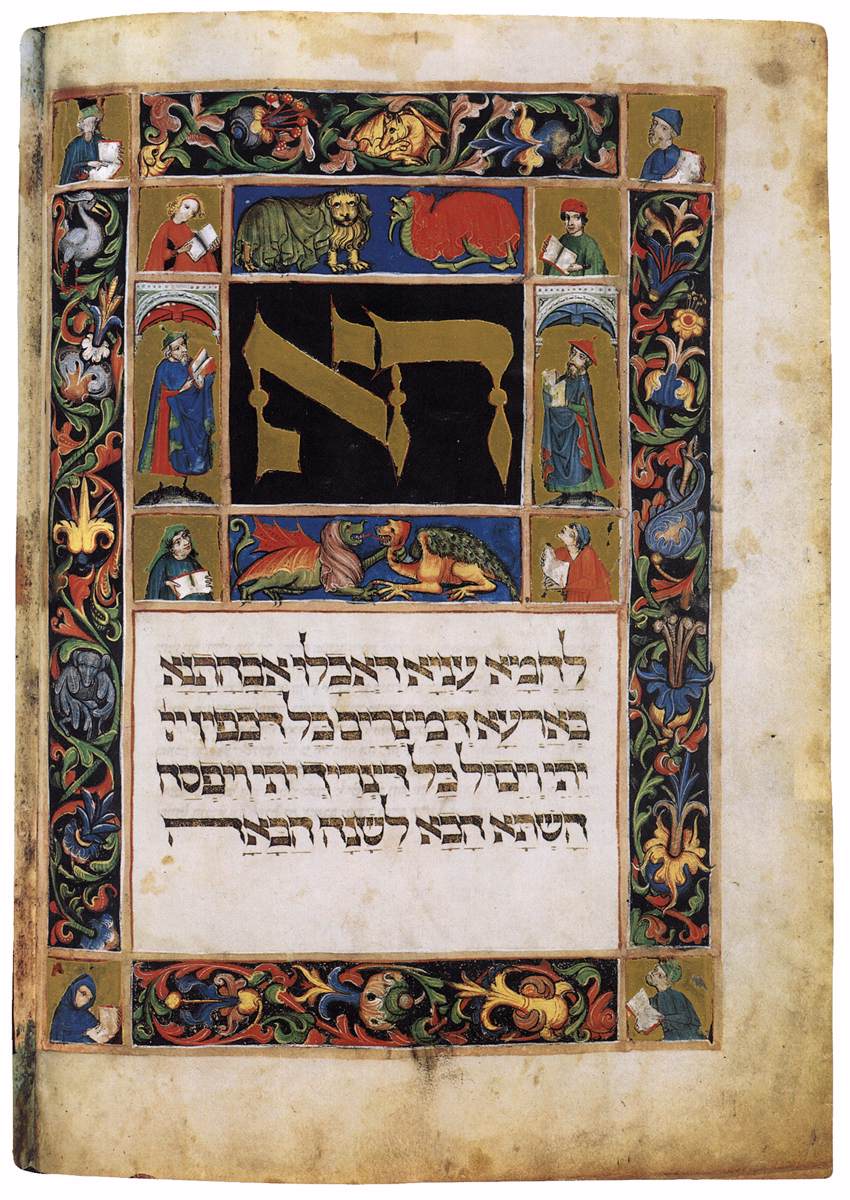 הא
לחמא עניא דאכלו אבהתנא
בארעא דמצרים כל דכפין
יתי ויכול כל דצריך יתי ויפסח
השתא הכא לשנה הבאה